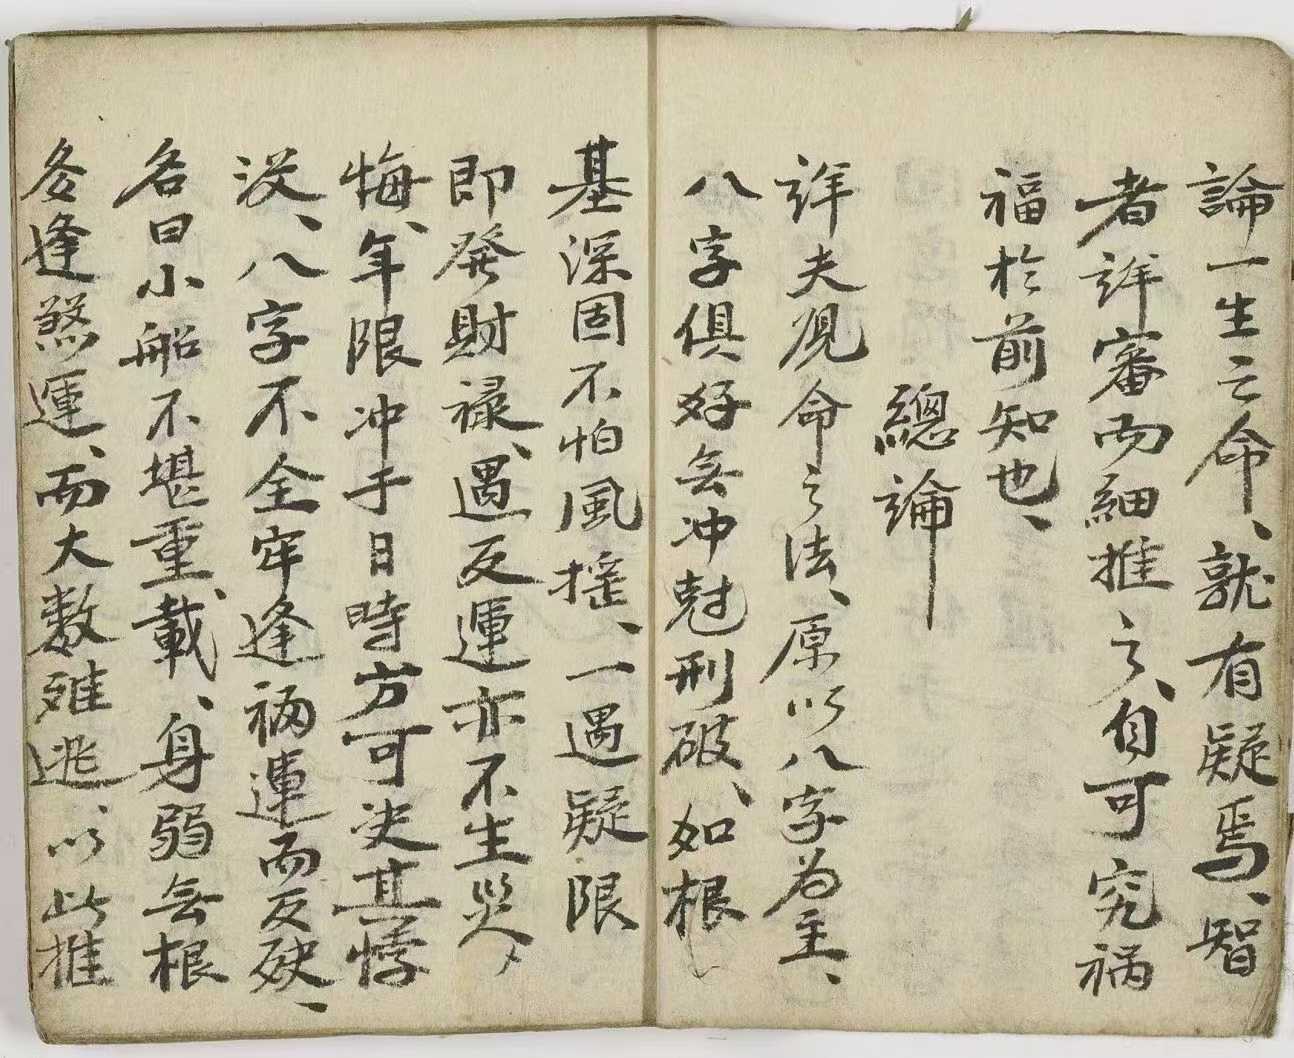 論一生之命、就有疑焉、智
者詳審而細推之、自可究禍
福於前知也、
總論
詳夫觀命之法、原以八字為主、
八字俱好無冲尅刑破、如根
基深固不怕風搖、一遇疑限
即發財祿、遇反運亦不生災、
悔、年限冲于日時方可决其悖
没、八字不全牢逢禍運而反殀、
名曰小船不堪重載、身弱無根
多逢煞運、而大數难逃、以此推